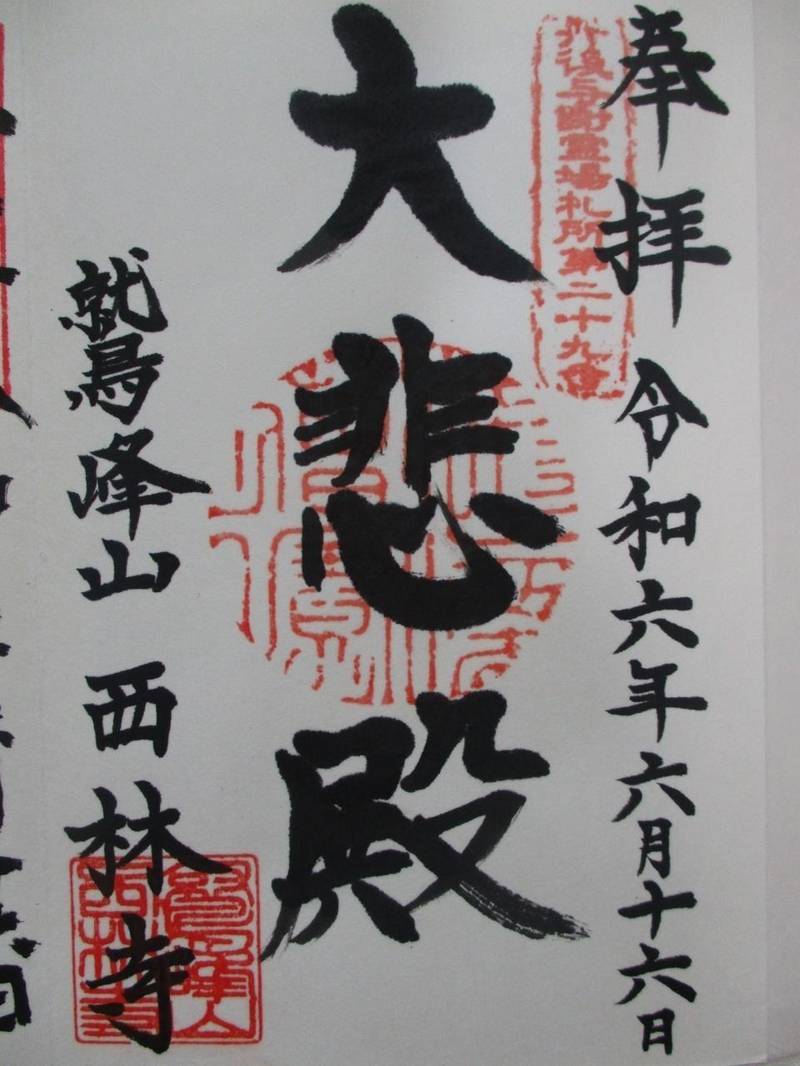 奉拝 令和六年六月十六日
丹後与謝霊場札所第二十九番
大悲殿
鷲峰山 西林寺
鷲峰山
西林寺